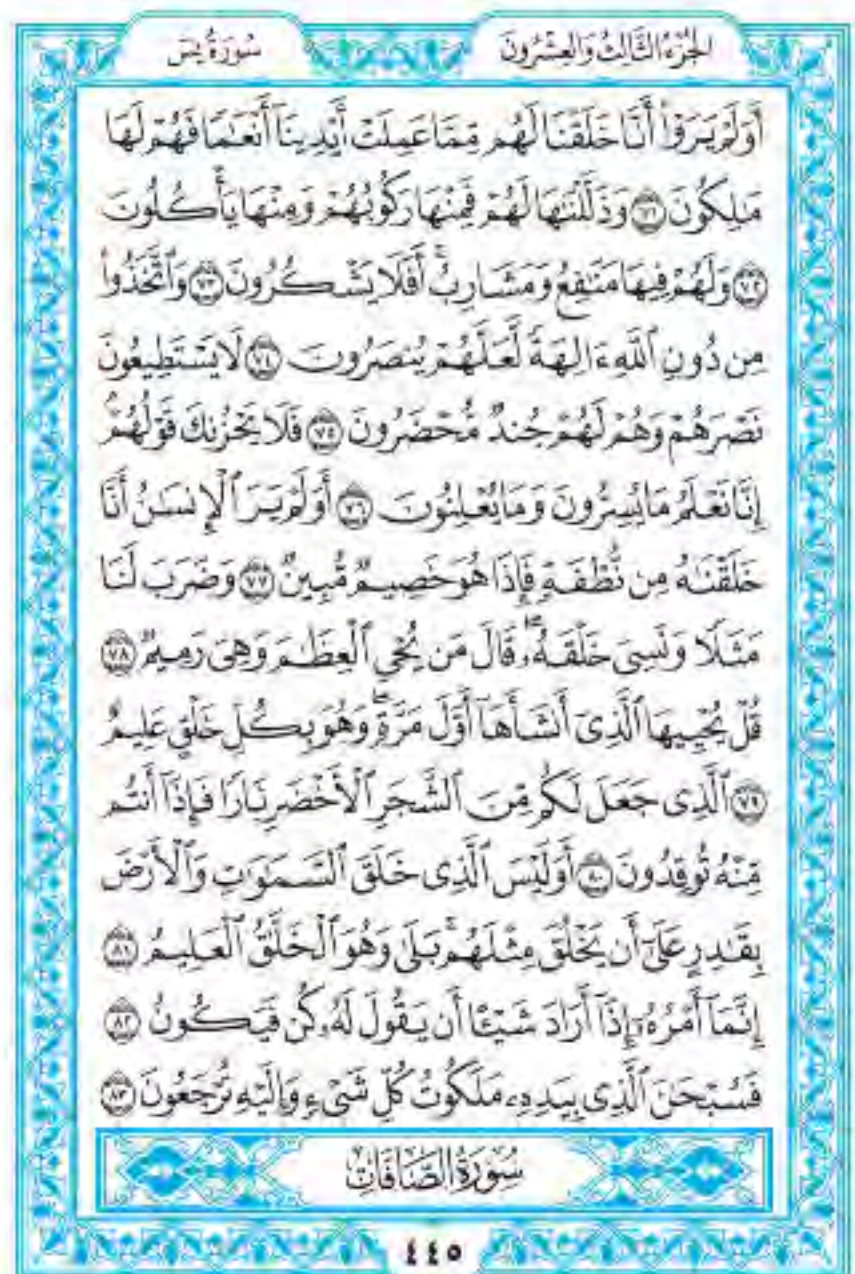 سُورَةُ يسٓ
الجُزْءُ الثَّالِثُ وَالعِشْرُونَ
أَوَلَمْ يَرَوْاْ أَنَّا خَلَقْنَا لَهُم مِّمَّا عَمِلَتْ أَيْدِينَآ أَنْعَٰمًا فَهُمْ لَهَا
مَٰلِكُونَ ٧١ وَذَلَّلْنَٰهَا لَهُمْ فَمِنْهَا رَكُوبُهُمْ وَمِنْهَا يَأْكُلُونَ
٧٢ وَلَهُمْ فِيهَا مَنَٰفِعُ وَمَشَارِبُۚ أَفَلَا يَشْكُرُونَ ٧٣ وَٱتَّخَذُواْ
مِن دُونِ ٱللَّهِ ءَالِهَةً لَّعَلَّهُمْ يُنصَرُونَ ٧٤ لَا يَسْتَطِيعُونَ
نَصْرَهُمْ وَهُمْ لَهُمْ جُندٌ مُّحْضَرُونَ ٧٥ فَلَا يَحْزُنكَ قَوْلُهُمْۘ
إِنَّا نَعْلَمُ مَا يُسِرُّونَ وَمَا يُعْلِنُونَ ٧٦ أَوَلَمْ يَرَ ٱلْإِنسَٰنُ أَنَّا
خَلَقْنَٰهُ مِن نُّطْفَةٍ فَإِذَا هُوَ خَصِيمٌ مُّبِينٌ ٧٧ وَضَرَبَ لَنَا
مَثَلًا وَنَسِيَ خَلْقَهُۥۖ قَالَ مَن يُحْىِ ٱلْعِظَٰمَ وَهِىَ رَمِيمٌ ٧٨
قُلْ يُحْيِيهَا ٱلَّذِىٓ أَنشَأَهَآ أَوَّلَ مَرَّةٍۖ وَهُوَ بِكُلِّ خَلْقٍ عَلِيمٌ
٧٩ ٱلَّذِى جَعَلَ لَكُم مِّنَ ٱلشَّجَرِ ٱلْأَخْضَرِ نَارًا فَإِذَآ أَنتُم
مِّنْهُ تُوقِدُونَ ٨٠ أَوَلَيْسَ ٱلَّذِى خَلَقَ ٱلسَّمَٰوَٰتِ وَٱلْأَرْضَ
بِقَٰدِرٍ عَلَىٰٓ أَن يَخْلُقَ مِثْلَهُمۚ بَلَىٰ وَهُوَ ٱلْخَلَّٰقُ ٱلْعَلِيمُ ٨١
إِنَّمَآ أَمْرُهُۥٓ إِذَآ أَرَادَ شَيْـًٔا أَن يَقُولَ لَهُۥ كُن فَيَكُونُ ٨٢
فَسُبْحَٰنَ ٱلَّذِى بِيَدِهِۦ مَلَكُوتُ كُلِّ شَىْءٍ وَإِلَيْهِ تُرْجَعُونَ ٨٣
سُورَةُ الصَّافَّاتِ
٤٤٥